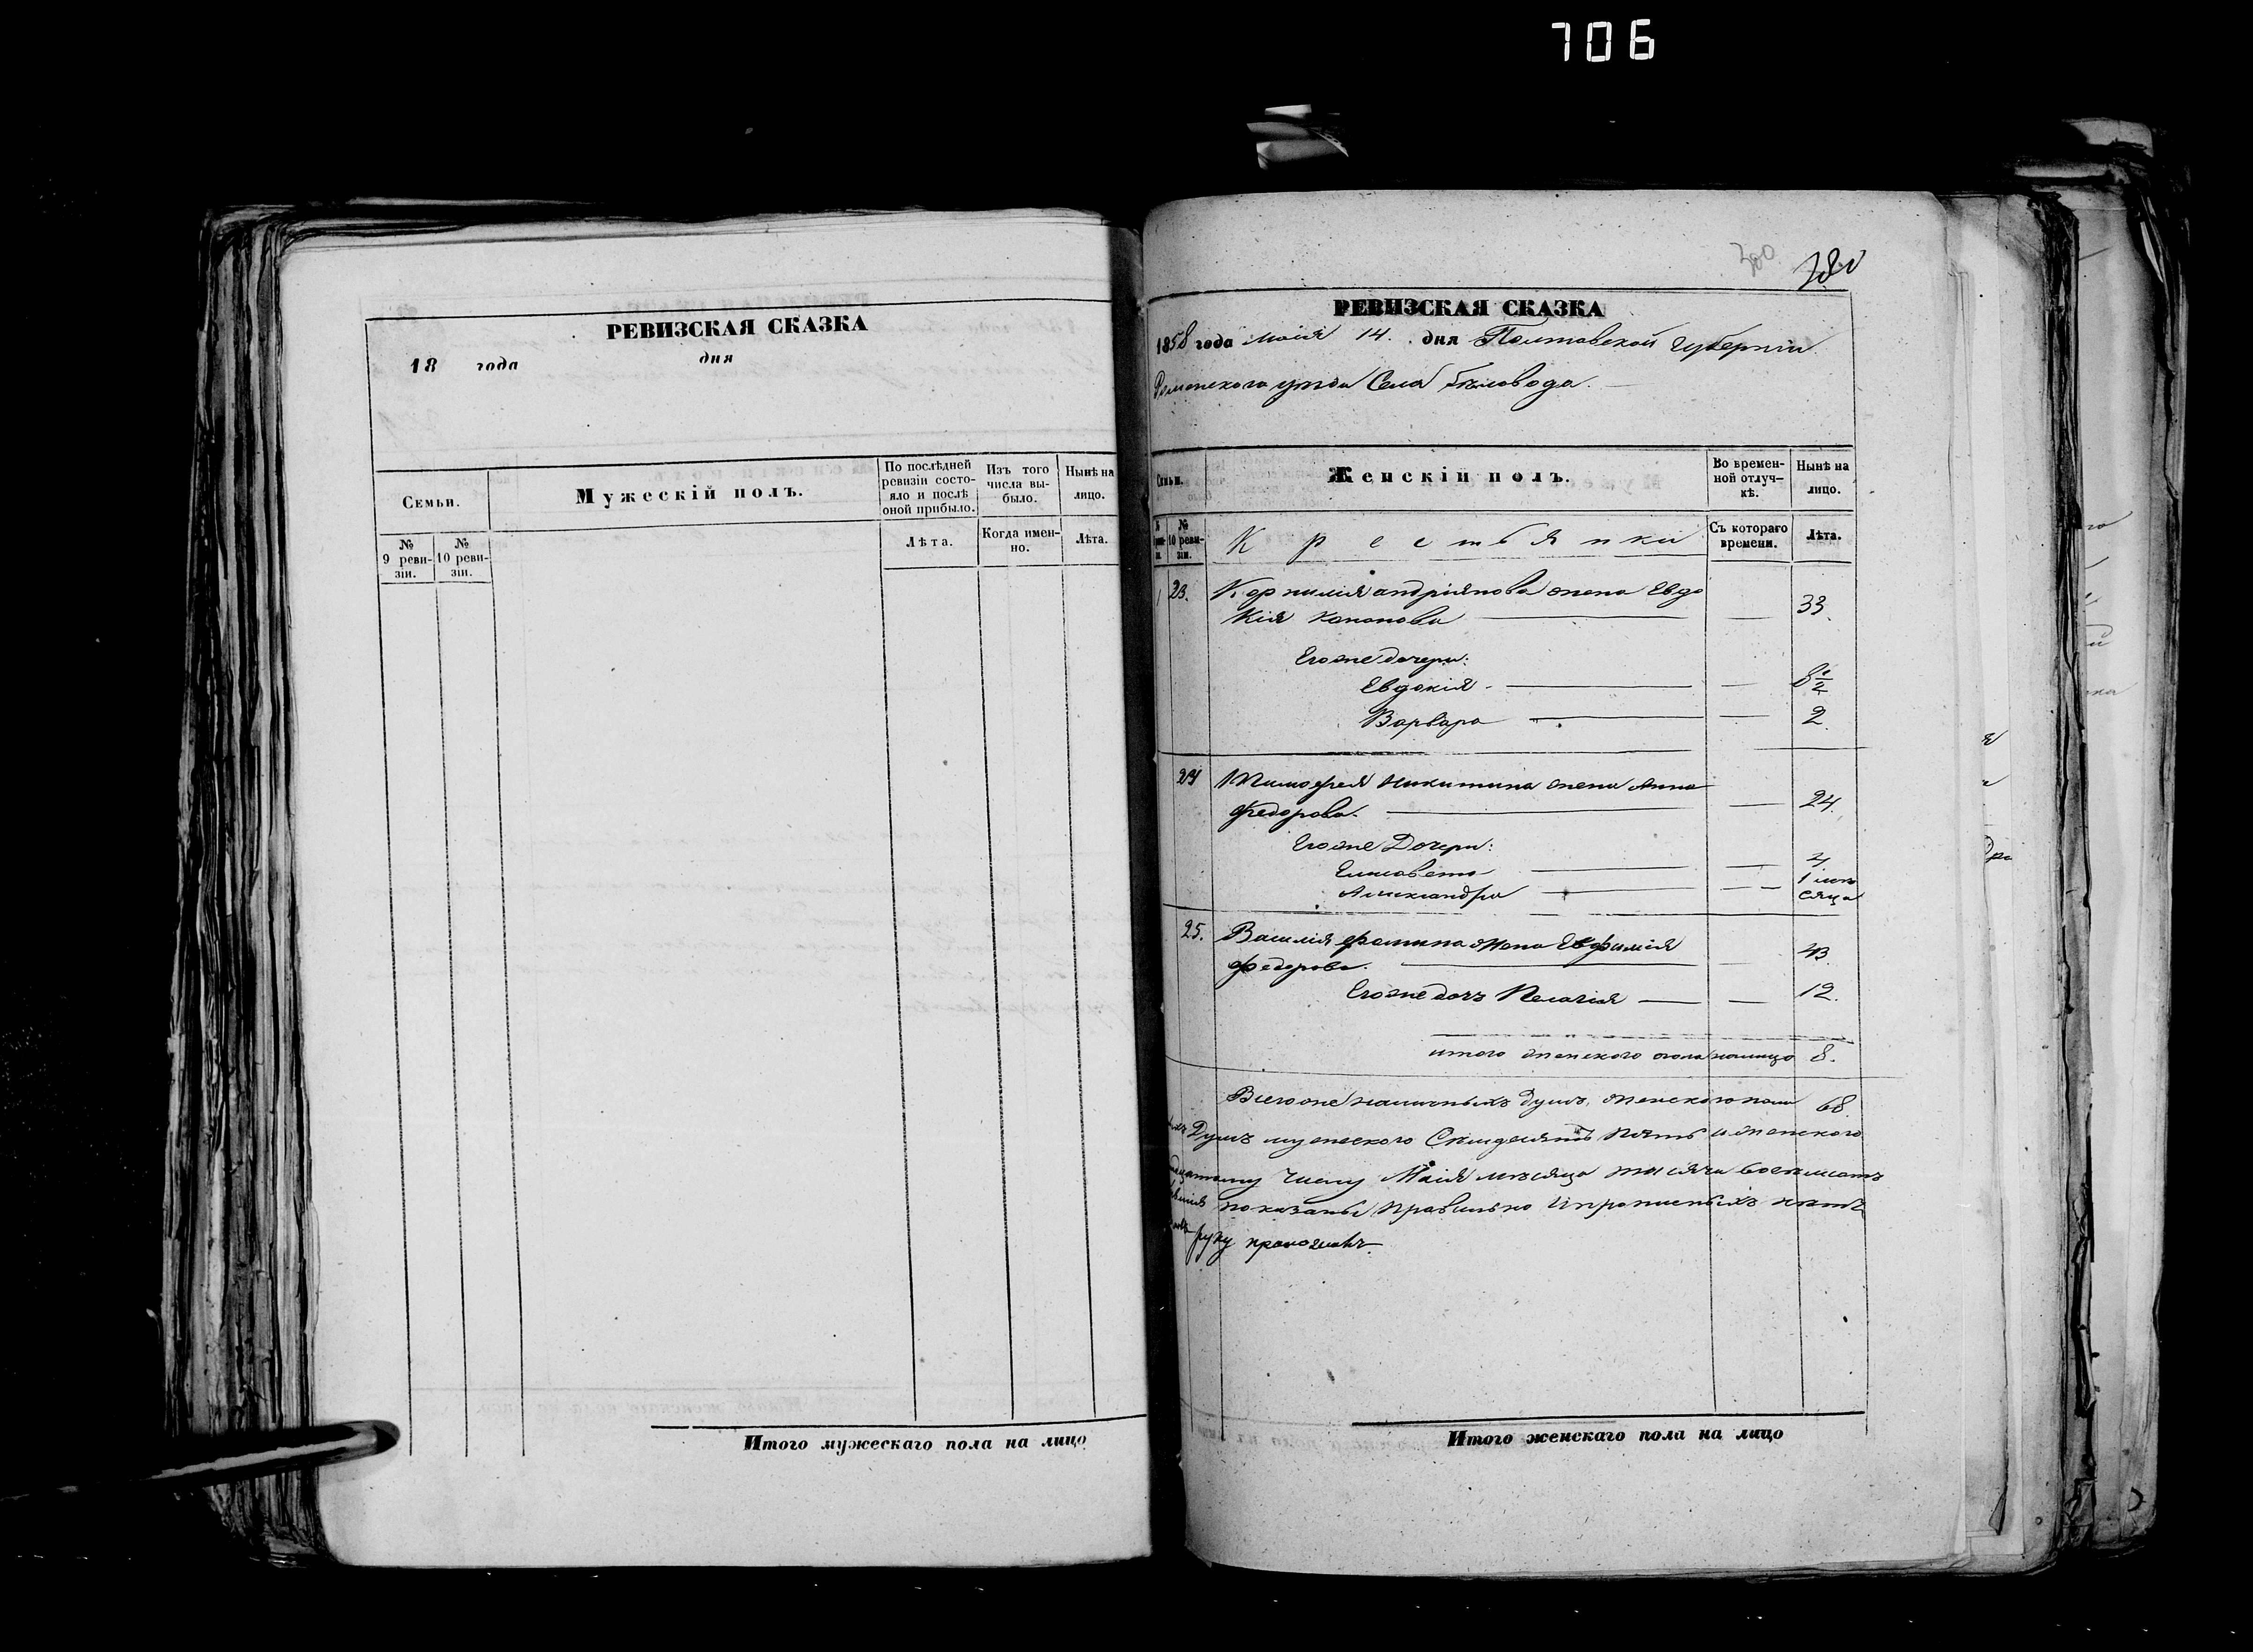 706
РЕВИЗСКАЯ СКАЗКА
18 года дня
Семьи.
Мужескій полъ.
По послѣдней ревизіи состо-
яло и послѣ
оной прибыло.
Изъ того
числа вы-
было.
Нынѣ на
лицо.
№
9 реви-
зіи.
№
10 реви-
зіи.
Лѣта.
Когда имен-
но.
Лѣта.
Итого мужескаго пола на лицо
380
РЕВИЗСКАЯ СКАЗКА
1858 года маія 14. дня Полтавской Губерніи
Роменского уезда Села Бѣловода.
Семьи.
Женскій полъ.
Во времен-
ной отлуч-
кѣ.
Нынѣ на
лицо.
№
10 реви-
зіи.
Крестьянки
Съ котораго
времени.
Лѣта.
23. Корнилія андріянова жена Евдо
кія Кононова 33.
Егоже дочери:
Евдокія 8 1/2
Варвара 2.
24 Тимофея Никитина жена Анна
Федорова. 24.
Егоже Дочери:
Елисавета 4
Александра 1 мѣ
сяца
25. Василія фомина жена Евфимія
Федорова. 43.
Егоже дочь Пелагія 12.
итого женского пола налицо 8.
Всегоже наличныхъ душъ женского пола 68.
Душъ мужеского Семдесятъ пять и женского
числу Маія мѣсяца тысяча восемсотъ
показаны правильно и прописныхъ нѣтъ
руку приложилъ.
Итого женскаго пола на лицо